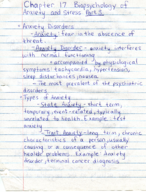 Chapter 17 Biopsychology of
Anxiety and Stress Part 3
- Anxiety Disorders
- Anxiety: fear in the absence of
threat
- Anxiety Disorder: anxiety interferes
with normal functioning
- accompanied by physiological
symptoms; tachycardia, hypertension,
sleep disturbances, nausea
- The most prevalent of the psychiatric
disorders
- Types of Anxiety
- State Anxiety: short term,
temporary, event-related, typically
unrelated to health. Example: test
anxiety
- Trait Anxiety: long term, chronic
characteristics of a person usually
causing or a consequence of other
health problems. Example: Anxiety
disorder, terminal cancer diagnosis